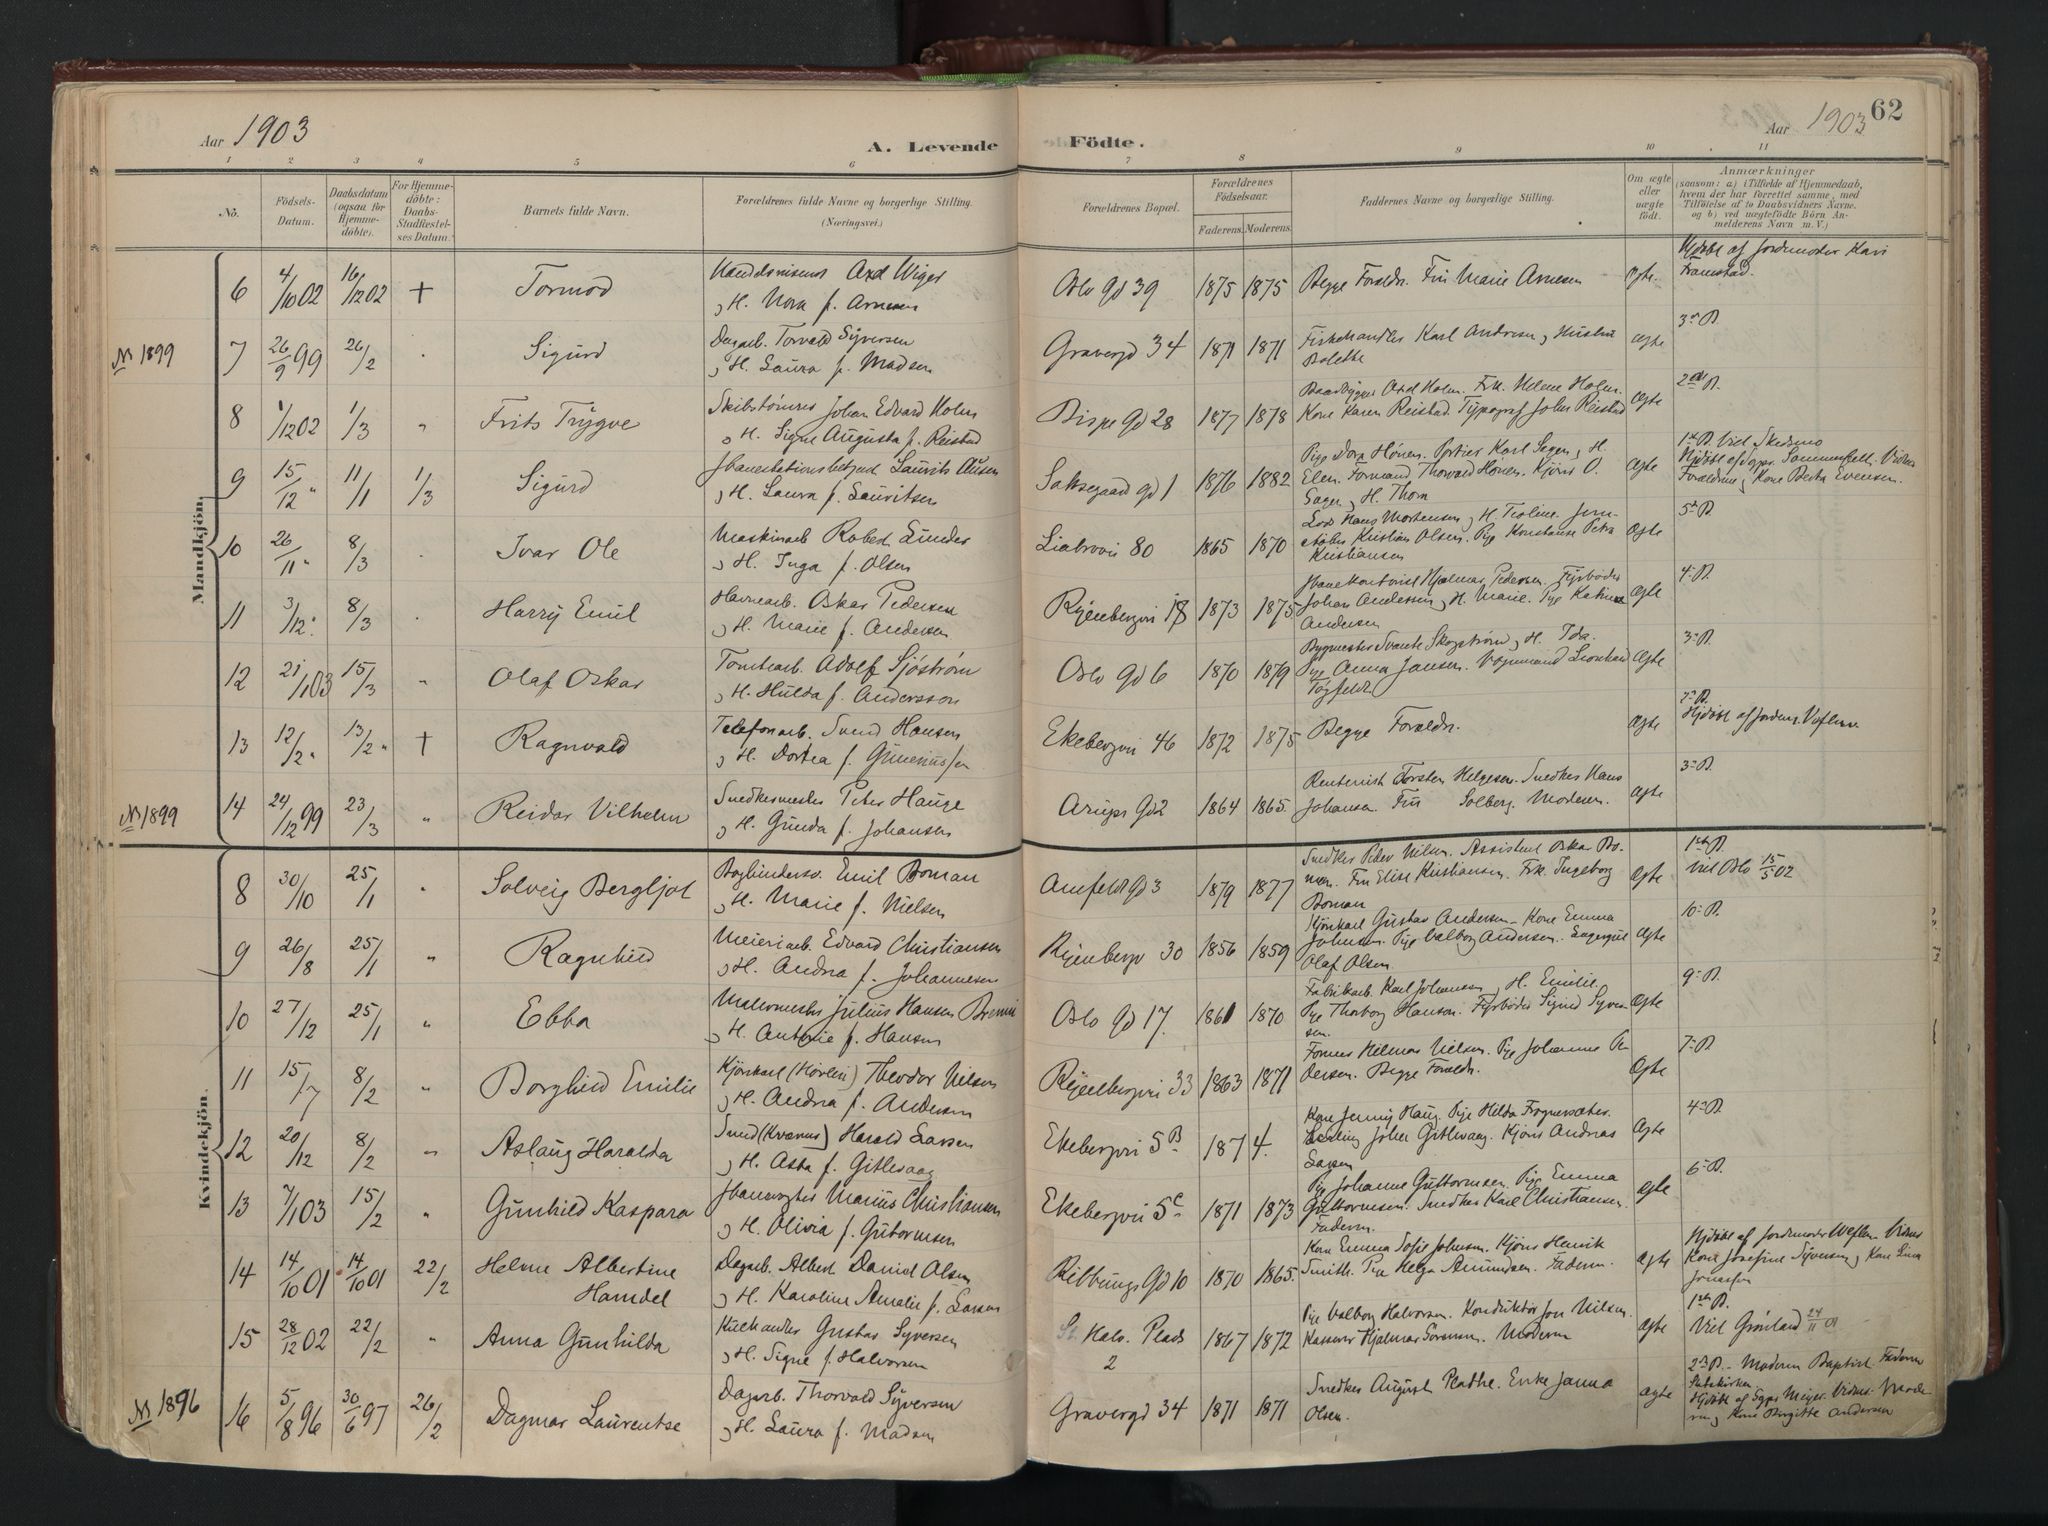 Aar 1903
A. Levende
Födte.
Aar 1903
62
1 2 3 4 5 6 7 8 9 10 11
No.
Födsels-Datum.
Daabsdatum (ogsaa for Hjemme-döbte).
For Hjemme-döbte: Daabs-Stadfæstel-ses Datum.
Barnets fulde Navn.
Forældrenes fulde Navne og borgerlige Stilling. (Næringsvei.)
Forældrenes Bopæl.
Forældrenes Födselsaar.
Faderens. Moderens.
Faddernes Navne og borgerlige Stilling.
Om ægte eller uægte födt.
Anmærkninger
(saasom: a) i Tilfælde af Hjemmedaab, hvem der har forrettet samme, med Tilföielse af to Daabsvidners Navne, og b) ved uægtefödte Börn An-melderens Navn m. V.)
Mandkjön.
6 4/10 02 16/12 02 + Tormod
Axel Wiger
H. Nora f. Arnesen
Oslo gd 39 1875 1875 Begge Foraldr. Fru Marie Arnesen ægte.
Hjdöbt af Jordmoder Kari Framstad.
N 1899
7 26/9 99 26/2 Sigurd
Dagarb. Torvald Syversen
H. Laura f. Madsen
Gravergd 34 1871 1871 Fiskehandler Karl Andresen, Hustru Bolette ægte
3die B.
8 1/12 02 1/3 " Frits Trygve
Skibstømrer Johan Edvard Holm
H. Signe Augusta f. Reistad
Bispe gd 28 1877 1878 Baadbygger Axel Holm. Frk. Helene Holm.
Kone Karen Reistad. Typograf Johs Reistad ægte
2den B.
9 15/12 " 11/1 1/3 Sigurd
Jbanestationsbetjent Laurits Olsen
H. Laura f. Lauritsen
Saksegaard gd 1 1876 1882 Pige Dora Hönen. Portier Karl Segen, H.
Elen. Formand Thorvard Hönen. Kjöns O.
ægte
1ste B. Viet Skedsmo
Forældrene, Kone Berta Evensen.
10 26/11 " 8/3 Ivar Ole
Maskinarb. Robert Linder
H. Inga f. Olsen
Liabrovei 80 1865 1870 Lods Hans Mortensen, H. Tioline. Jern-
støber Kristian Olsen. Pige Konstanse Petra
Kristiansen ægte
5te B.
11 3/12 " 8/3 Harry Emil
Havnearb. Oskar Pedersen
H. Marie f. Andersen
Ryenbergvei 18 1873 1875 Jbanekontorist Hjalmar Pedersen. Fyrbøder
Johan Andersen, H. Marie. Pige Katinka
Andersen ægte
4de B.
12 21/1 03 15/3 " Olaf Oskar
Tomtearb. Adolf Sjöström
H. Hulda f. Andersson
Oslo gd 6 1870 1879 Bygmester Svante Skogström, H. Ida.
Pige Anna Jansen. Vognmand Leonhard
ægte
3die B.
13 12/2 " 13/2 " + Ragnvald
Telefonarb. Svend Hansen
H. Dortea f.
Ekebergvei 46 1872 1875 Begge Foraldr. ægte
Hjdöbt af Jordm. Veflen.
N 1899
14 24/12 99 23/3 " Reidar Vilhelm
Snedkermester Peter Hauge
H. Gunda f. Johansen
Arups gd 2 1864 1865. Rentenist Torsten Helgesen. Snedker Hans
Johansen. Fru Solberg. Moderen. ægte
3die B.
Kvindekjön.
8 30/10 25/1 " Solveig Bergljot
Bogbindersv. Emil Boman
H. Marie f. Nielsen
Amfeldt gd 3 1879 1877 Snedker Peder Nilsen. Assistent Oskar Bo-
man. Fru Elise Kristiansen. Frk. Ingeborg
Boman ægte
1ste B.
viet Oslo 15/5 02
9 26/8 25/1 " Ragnhild
Meieriarb. Edvard Christiansen
H. Andrea f. Johannesen
Ryenbergv 30 1856 1859 Kjörekarl Gustav Andersen. Kone Emma
Johnsen. Pige Valborg Andersen. Sagergut
Olaf Olsen ægte
10de B.
10 27/12 25/1 " Ebba
Malermester Julius Hansen
H. Antonie f. Hansen
Oslo gd 17. 1861 1870 Fabrikarb. Karl Johansen, H. Emilie.
Pige Thorborg Hansen. Fyrbøder Sigurd Syver-
sen. ægte
9de B.
11 15/7 8/2 " Borghild Emilie
Kjörekarl (Hövlen) Theodor Nilsen
H. Andrea f. Andersen
Ryenbergvei 33 1863 1871 Former Hilmar Nielsen. Pige Johanne Pe-
dersen. Begge Foraldr. ægte
7de B.
12 20/12 8/2 " Aslaug Haralda
Smed (Kværner) Harald Larsen
H. Asta f. Gitlesaag
Ekebergvei 5B 1874. Kone Jenny Haug. Pige Hilda Frognersæter.
Lærling Johan Gitlesaag. Kjöns Andreas
Larsen ægte
4de B.
13 7/1 03 15/2 " Gunhild Kaspara
Jbanevogter Marius Christiansen
H. Olivia f. Gutormsen
Ekebergvei 5C 1871 1873 Pige Johanne Guttormsen. Pige Emma
Guttormsen. Snedker Karl Christiansen.
Faderen. ægte
6te B.
14 14/10 01 14/10 01 22/2 Helene Albertine
Hamdel
Dagarb. Albert Daniel Olsen
H. Karoline Amalie f. Larsen
Ribbungs gd 10 1870 1865. Kone Emma Sofie Johnsen. Kjöns Henrik
Smith. Pige Helga Amundsen. Faderen. ægte
Hjdöbt af Jordmoder Weflen. Vidner
Kone Josefine Syversen, Kone Lina
15 28/12 02 22/2 " Anna Gunhilda
Kulhandler Gustav Syversen
H. Signe f. Halvorsen
St. Halv. Plads 2 1867 1872 Pige Valborg Halvorsen. Konduktør Jon Nilsen.
Kasserer Hjalmar Sörensen. Moderen ægte
1ste B.
Viet Grönland 24/11 01
N 1896
16 5/8 96 30/6 97 26/2 Dagmar Laurentse
Dagarb. Thorvald Syversen
H. Laura f. Madsen
Gravergd 34 1871 1871 Snedker August Rathe. Enke Janna
Olsen. ægte
2 B. Moderen Baptist. Faderen
Statskirken.
Hjdöbt af Sgpr. Meyer. Vidner: Mode-
ren, Kone Birgitte Andersen